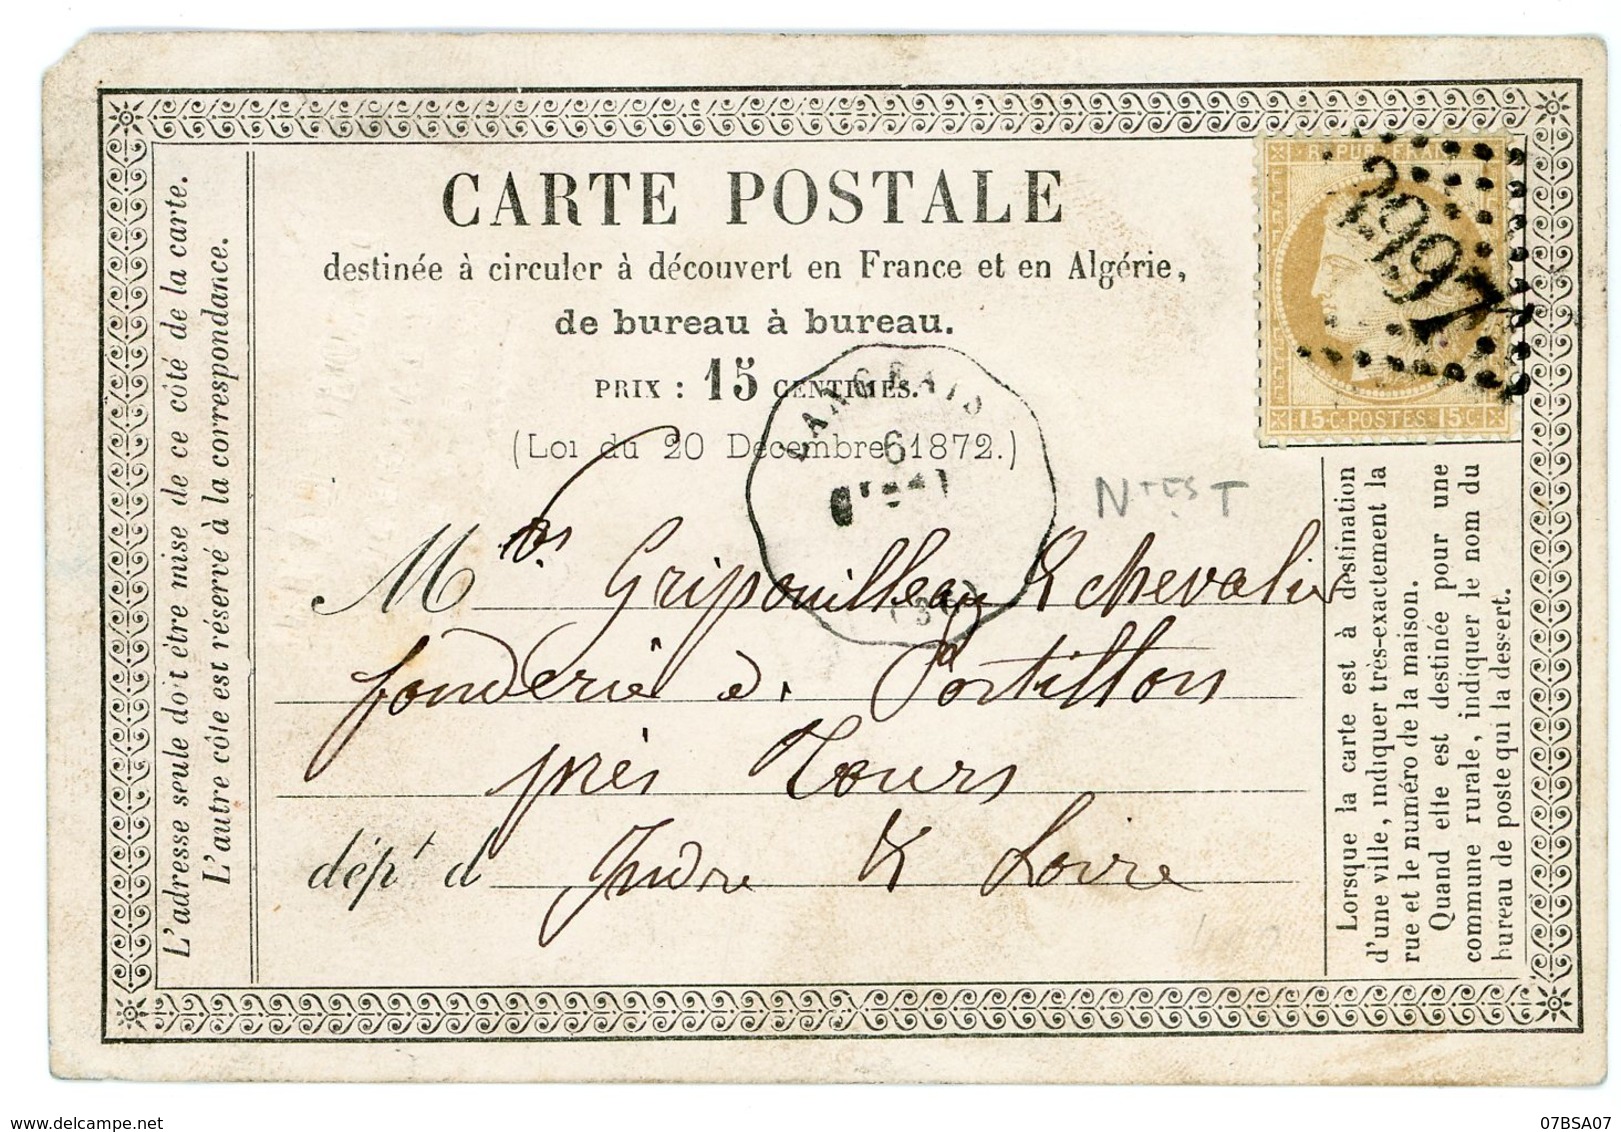 CARTE POSTALE
destinée à circuler à découvert en France et en Algérie,
de bureau à bureau.
PRIX : 15 CENTIMES.
(Loi du 20 Décembre 1872.)
RÉPUB. FRANC
15 C. POSTES 15 C.
LANGEAIS
6
N TES T
Mrs Gripouilleau & Chevalier
fonderie d. Portillon
près Tours
dépt d Indre & Loire
L'adresse seule doit être mise de ce côté de la carte.
L'autre côté est réservé à la correspondance.
Lorsque la carte est à destination
d'une ville, indiquer très-exactement la
rue et le numéro de la maison.
Quand elle est destinée pour une
commune rurale, indiquer le nom du
bureau de poste qui la dessert.
07BSA07